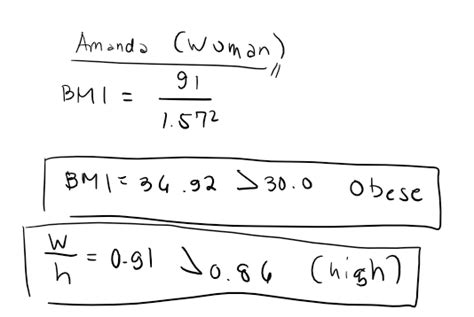 Amanda (Woman)
BMI = 91 / 1.57²
BMI = 36.92 > 30.0 Obese
w/h = 0.91 > 0.86 (high)